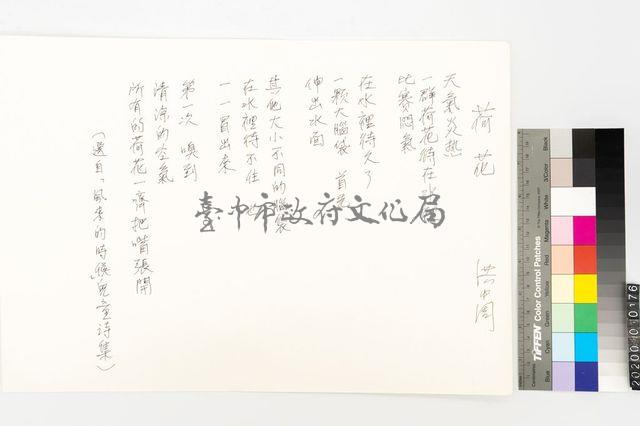 荷花
洪中周
天氣炎熱
一群荷花待在水
比賽悶氣
在水裡待久了
一顆大腦袋 首先
伸出水面
其他大小不同的腦袋
在水裡待不住
一一冒出來
第一次 嗅到
清涼的空氣
所有的荷花一齊把嘴張開
(選自「風來的時候」兒童詩集)
臺中市政府文化局
TIFFEN Color Control Patches
Blue
Cyan
Green
Yellow
Red
Magenta
White
3/Color
Black
20200010176